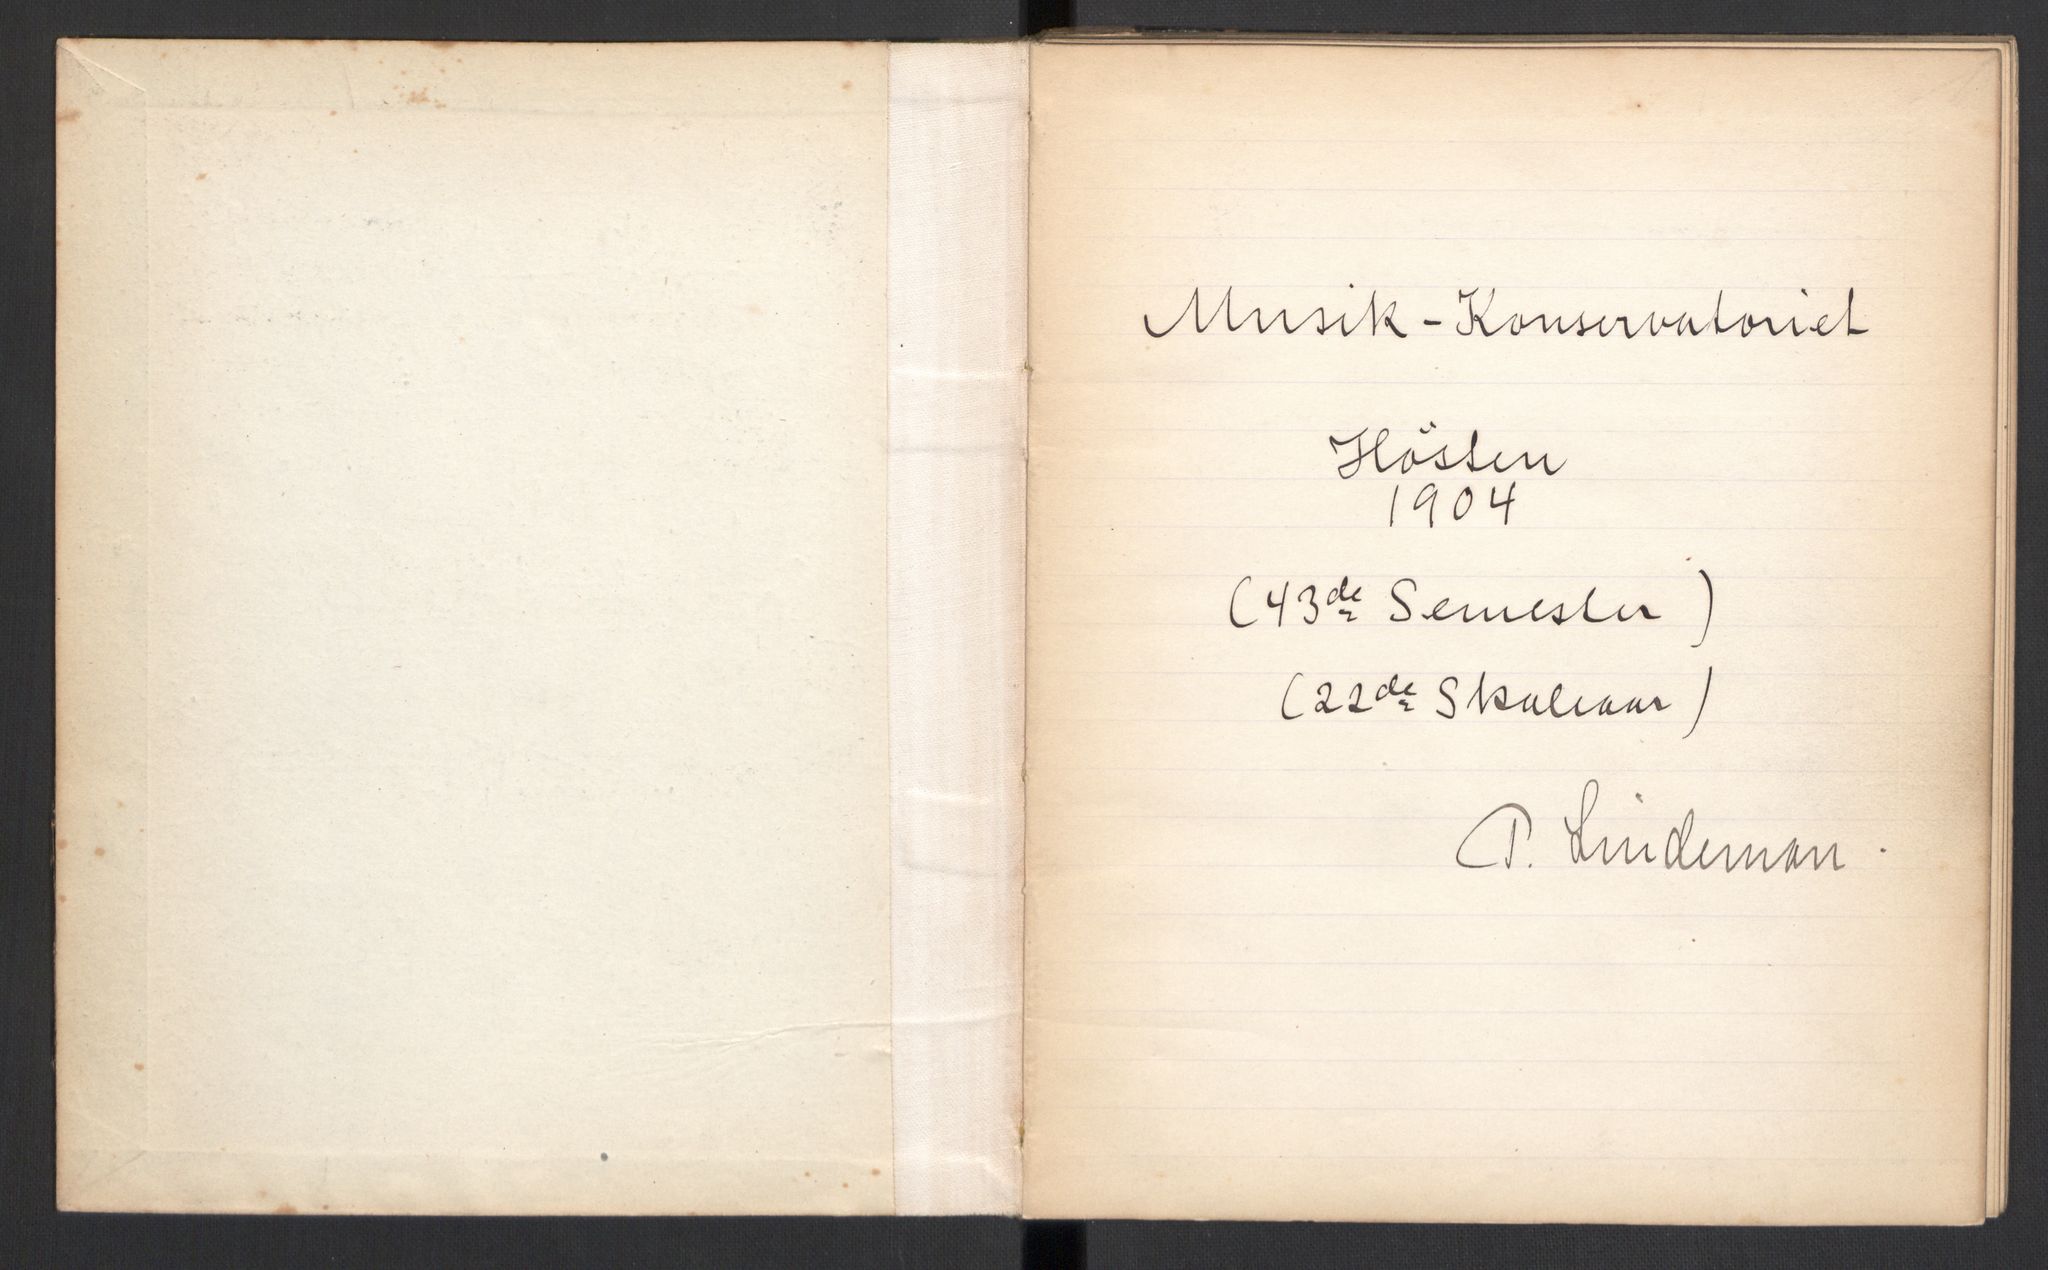 Musik-Konservatoriet
Hösten
1904
(43de Semester)
(22de Skoleaar)
P. Lindeman.